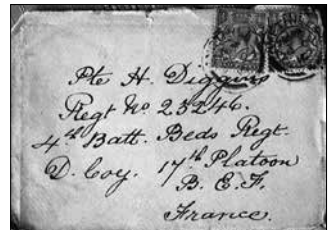 Pte H. Diggins
Regt No 23246.
4th Batt. Beds Regt.
D. Coy. 17th Platoon
B. E. F.
France.